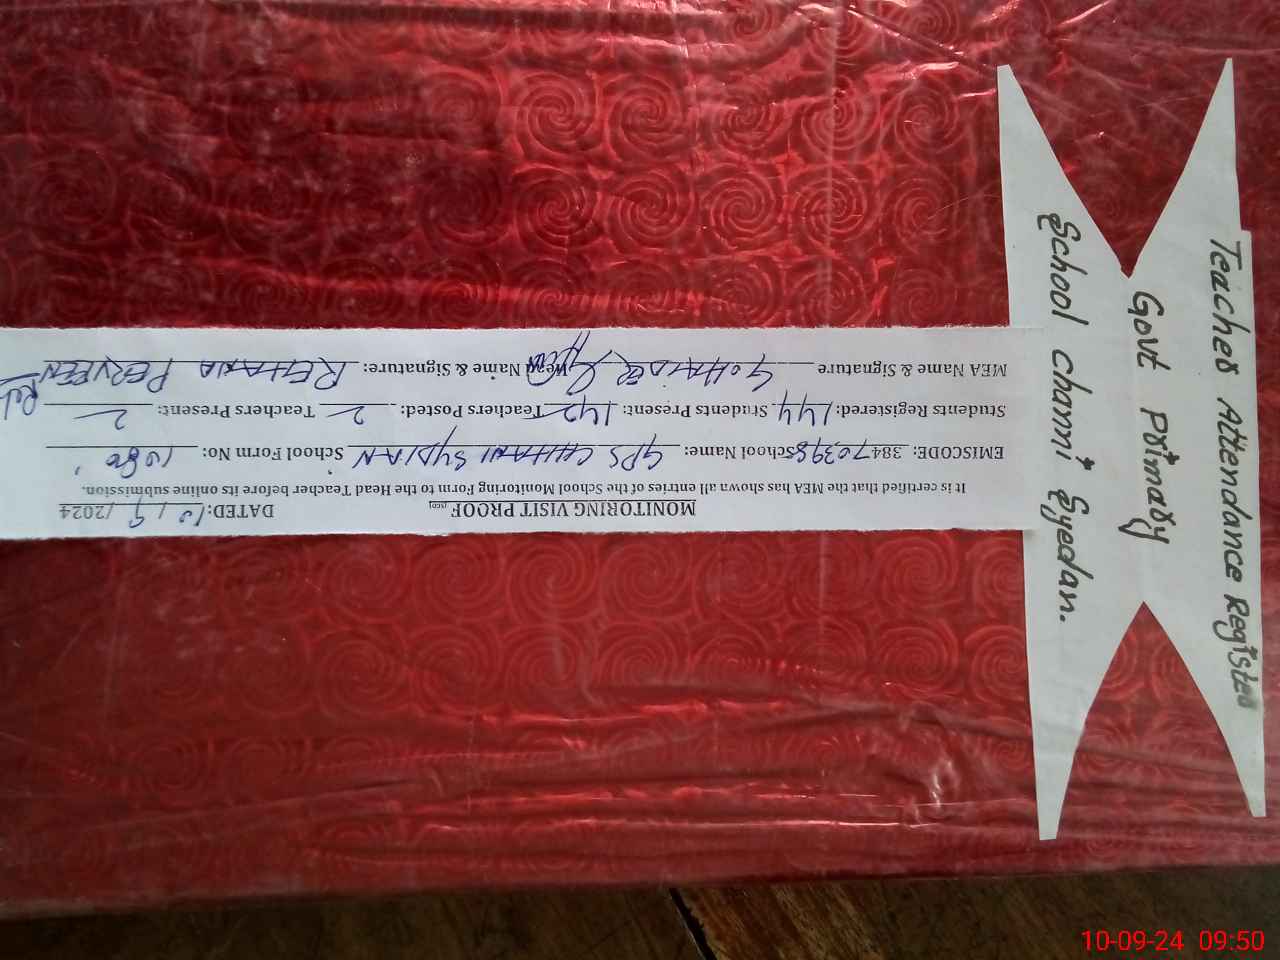 Teacher Attendance Register
Govt Primary
School Channi Syedan.
MONITORING VISIT PROOF DATED: 10/9/2024
It is certified that the MEA has shown all entries of the School Monitoring Form to the Head Teacher before its online submission.
EMISCODE: 38470398 School Name: GPS CHHANI SYDIAN School Form No:
Students Registered: 144 Students Present: 142 Teachers Posted: 2 Teachers Present: 2
MEA Name & Signature Name & Signature: REHANA PERVEEN
10-09-24 09:50